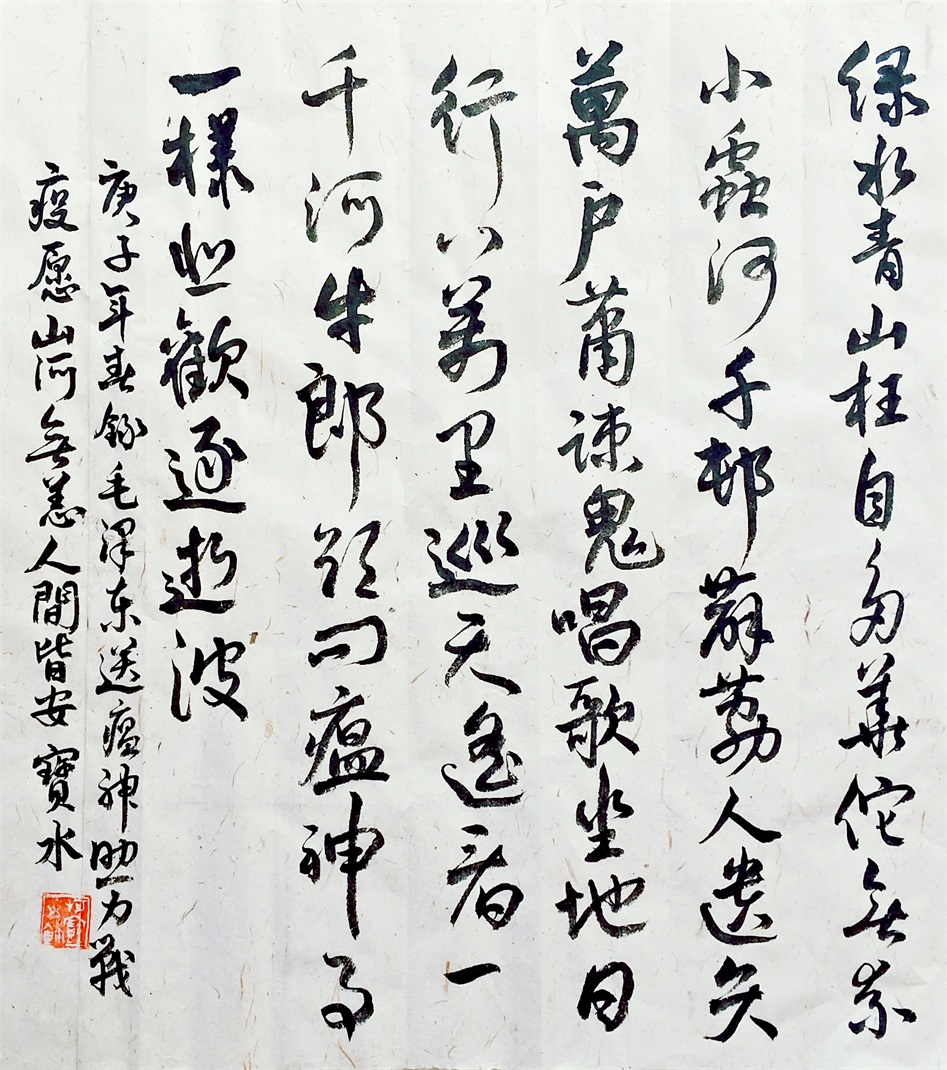 绿水青山枉自多華佗無奈
小蟲河千邨薜荔人遗矢
萬户蕭疎鬼唱歌坐地日
行八萬里巡天遥看一
千河牛郎欲问瘟神事
一樣悲歡逐逝波
庚子年春録毛泽东送瘟神助力戰
疫愿山河無恙人間皆安寶水